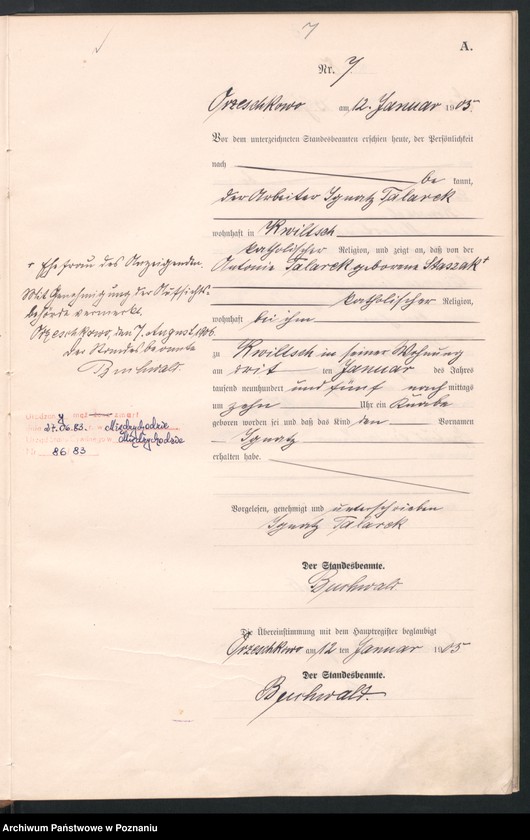 7
A.
Nr. 7
Orzeschkowo am 12. Januar 1905.
Vor dem unterzeichneten Standesbeamten erschien heute, der Persönlichkeit
nach
be kannt,
der Arbeiter Ignatz Talarek
wohnhaft in Kwiltsch
katholischer Religion, und zeigt an, daß von der
Antonie Talarek geborene Staszak +
katholischer Religion,
wohnhaft bei ihm
zu Kwiltsch in seiner Wohnung
am drit ten Januar des Jahres
tausend neunhundert und fünf nach mittags
um zehn Uhr ein Knabe
geboren worden sei und daß das Kind den Vornamen
Ignatz
erhalten habe.
Vorgelesen, genehmigt und unterschrieben
Ignatz Talarek
Der Standesbeamte.
Buchwald.
Die Übereinstimmung mit dem Hauptregister beglaubigt
Orzeschkowo am 12 ten Januar 1905
Der Standesbeamte.
Buchwald.
+ Ehefrau des Anzeigenden.
Mit Genehmigung der Aufsichts-
behörde vermerkt.
Orzeschkowo, den 7. August 1906.
Der Standesbeamte
Buchwald
27.06.83. Międzychodzie
Międzychodzie
86.83
Archiwum Państwowe w Poznaniu